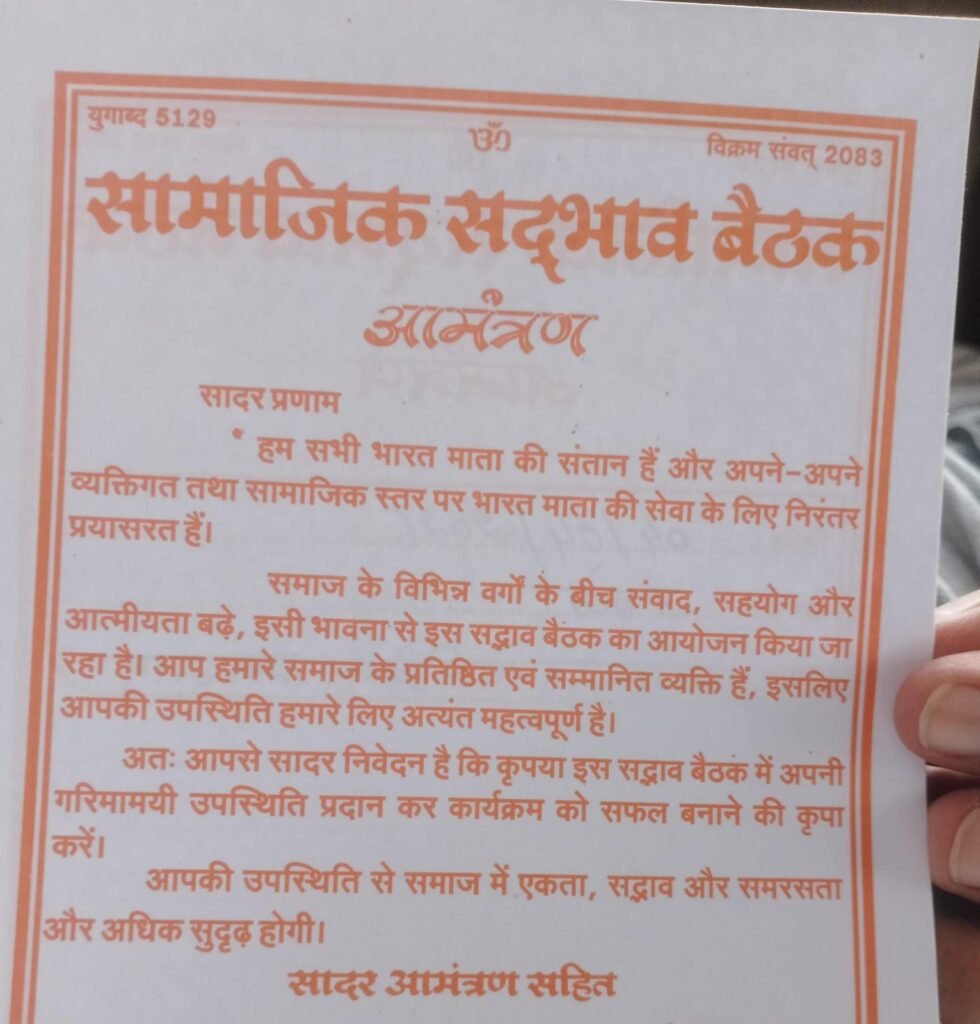 युगाब्द 5129
ॐ
विक्रम संवत् 2083
सामाजिक सद्‌भाव बैठक
आमंत्रण
सादर प्रणाम
हम सभी भारत माता की संतान हैं और अपने-अपने
व्यक्तिगत तथा सामाजिक स्तर पर भारत माता की सेवा के लिए निरंतर
प्रयासरत हैं।
समाज के विभिन्न वर्गों के बीच संवाद, सहयोग और
आत्मीयता बढ़े, इसी भावना से इस सद्भाव बैठक का आयोजन किया जा
रहा है। आप हमारे समाज के प्रतिष्ठित एवं सम्मानित व्यक्ति हैं, इसलिए
आपकी उपस्थिति हमारे लिए अत्यंत महत्वपूर्ण है।
अतः आपसे सादर निवेदन है कि कृपया इस सद्भाव बैठक में अपनी
गरिमामयी उपस्थिति प्रदान कर कार्यक्रम को सफल बनाने की कृपा
करें।
आपकी उपस्थिति से समाज में एकता, सद्भाव और समरसता
और अधिक सुदृढ़ होगी।
सादर आमंत्रण सहित